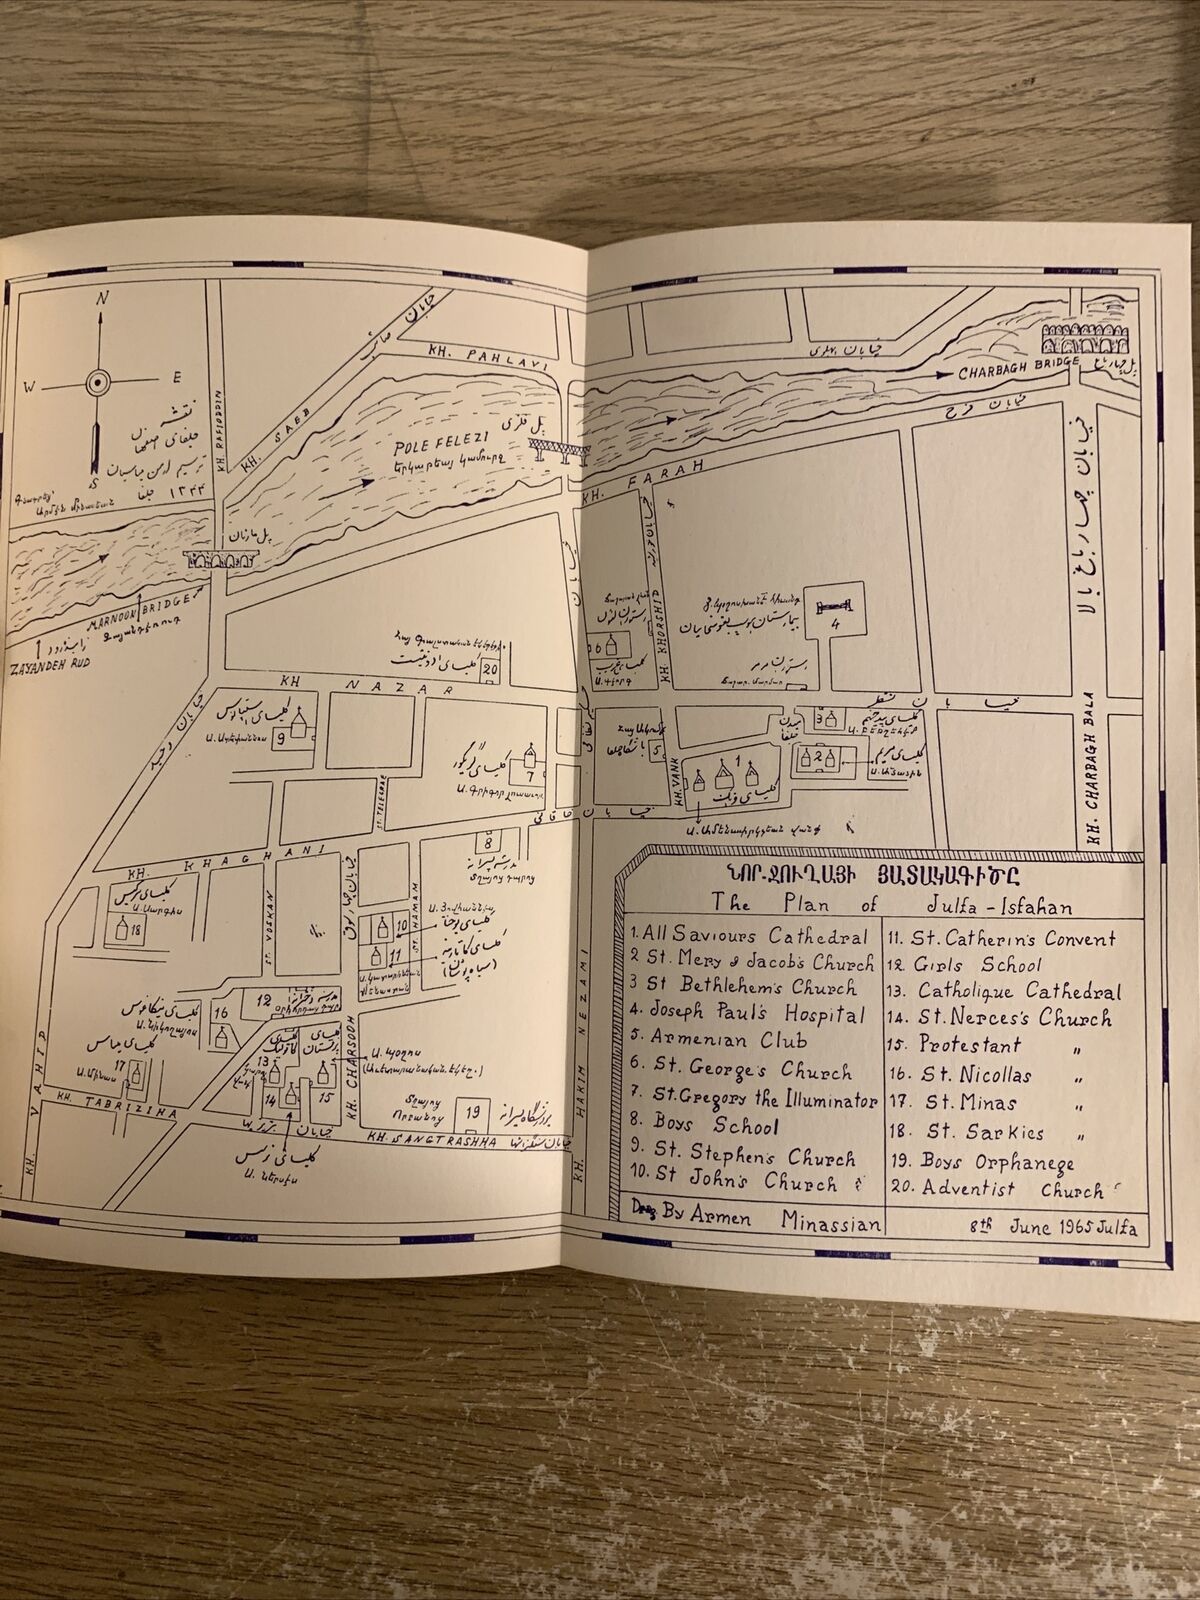 N
W
E
S
نقشه
جلفای اصفهان
۱۳۴۴ جلفا
KH. RAFIODDIN
KH. SAEB
خیابان صائب
KH. PAHLAVI
خیابان پهلوی
CHARBAGH BRIDGE
پل چهارباغ
POLE FELEZI
پل فلزی
երկաթեայ կամուրջ
KH. FARAH
خیابان فرح
خیابان چهارباغ بالا
KH. CHARBAGH BALA
پل مارنان
MARNOON BRIDGE
Զայանդէռուդ
زاینده رود
ZAYANDEH RUD
خیابان وحید
KH. VAHID
KH. KHORSHID
4
6
کلیسای غریب
Ս. Գէորգ
رستوران مرمر
20
KH NAZAR
خیابان نظر
کلیسای استپانوس
Ս. Ստեփաննոս
9
7
Ս. Գրիգոր Լուսաւոր
5
KH. VANK
میدان جلفا
3
2
کلیسای مریم
1
کلیسای وانک
Ս. Ամենափրկչեան վանք
خیابان خاقانی
ST. TELEGRAF
8
مدرسه پسرانه
KH. KHAGHANI
Ս. Սարգիս
18
ST. VOSKAN
خیابان چهارسوق
ST. HAMAM
10
Ս. Յովհաննէս
کلیسای یوحنا
11
کلیسای کاتارینه
16
کلیسای نیکاغوس
Ս. Նիկողայոս
12
کلیسای میناس
Ս. Մինաս
17
13
14
15
Ս. Պօղոս
KH. CHARSOOH
KH. TABRIZIHA
کلیسای نرسس
Ս. Ներսէս
19
KH. SANGTRASHHA
خیابان سنگتراشها
KH. HAKIM NEZAMI
ՆՈՐ-ՋՈՒՂԱՅԻ ՅԱՏԱԿԱԳԻԾԸ
The Plan of Julfa-Isfahan
1. All Saviours Cathedral
2 St. Mery & Jacob's Church
3 St Bethlehem's Church
4. Joseph Paul's Hospital
5. Armenian Club
6. St. George's Church
7. St. Gregory the Illuminator
8. Boys School
9. St. Stephen's Church
10. St John's Church
11. St. Catherin's Convent
12 Girls School
13. Catholique Cathedral
14. St. Nerces's Church
15. Protestant "
16. St. Nicollas "
17. St. Minas "
18. St. Sarkies "
19. Boys Orphanege
20. Adventist Church
By Armen Minassian
8th June 1965 Julfa